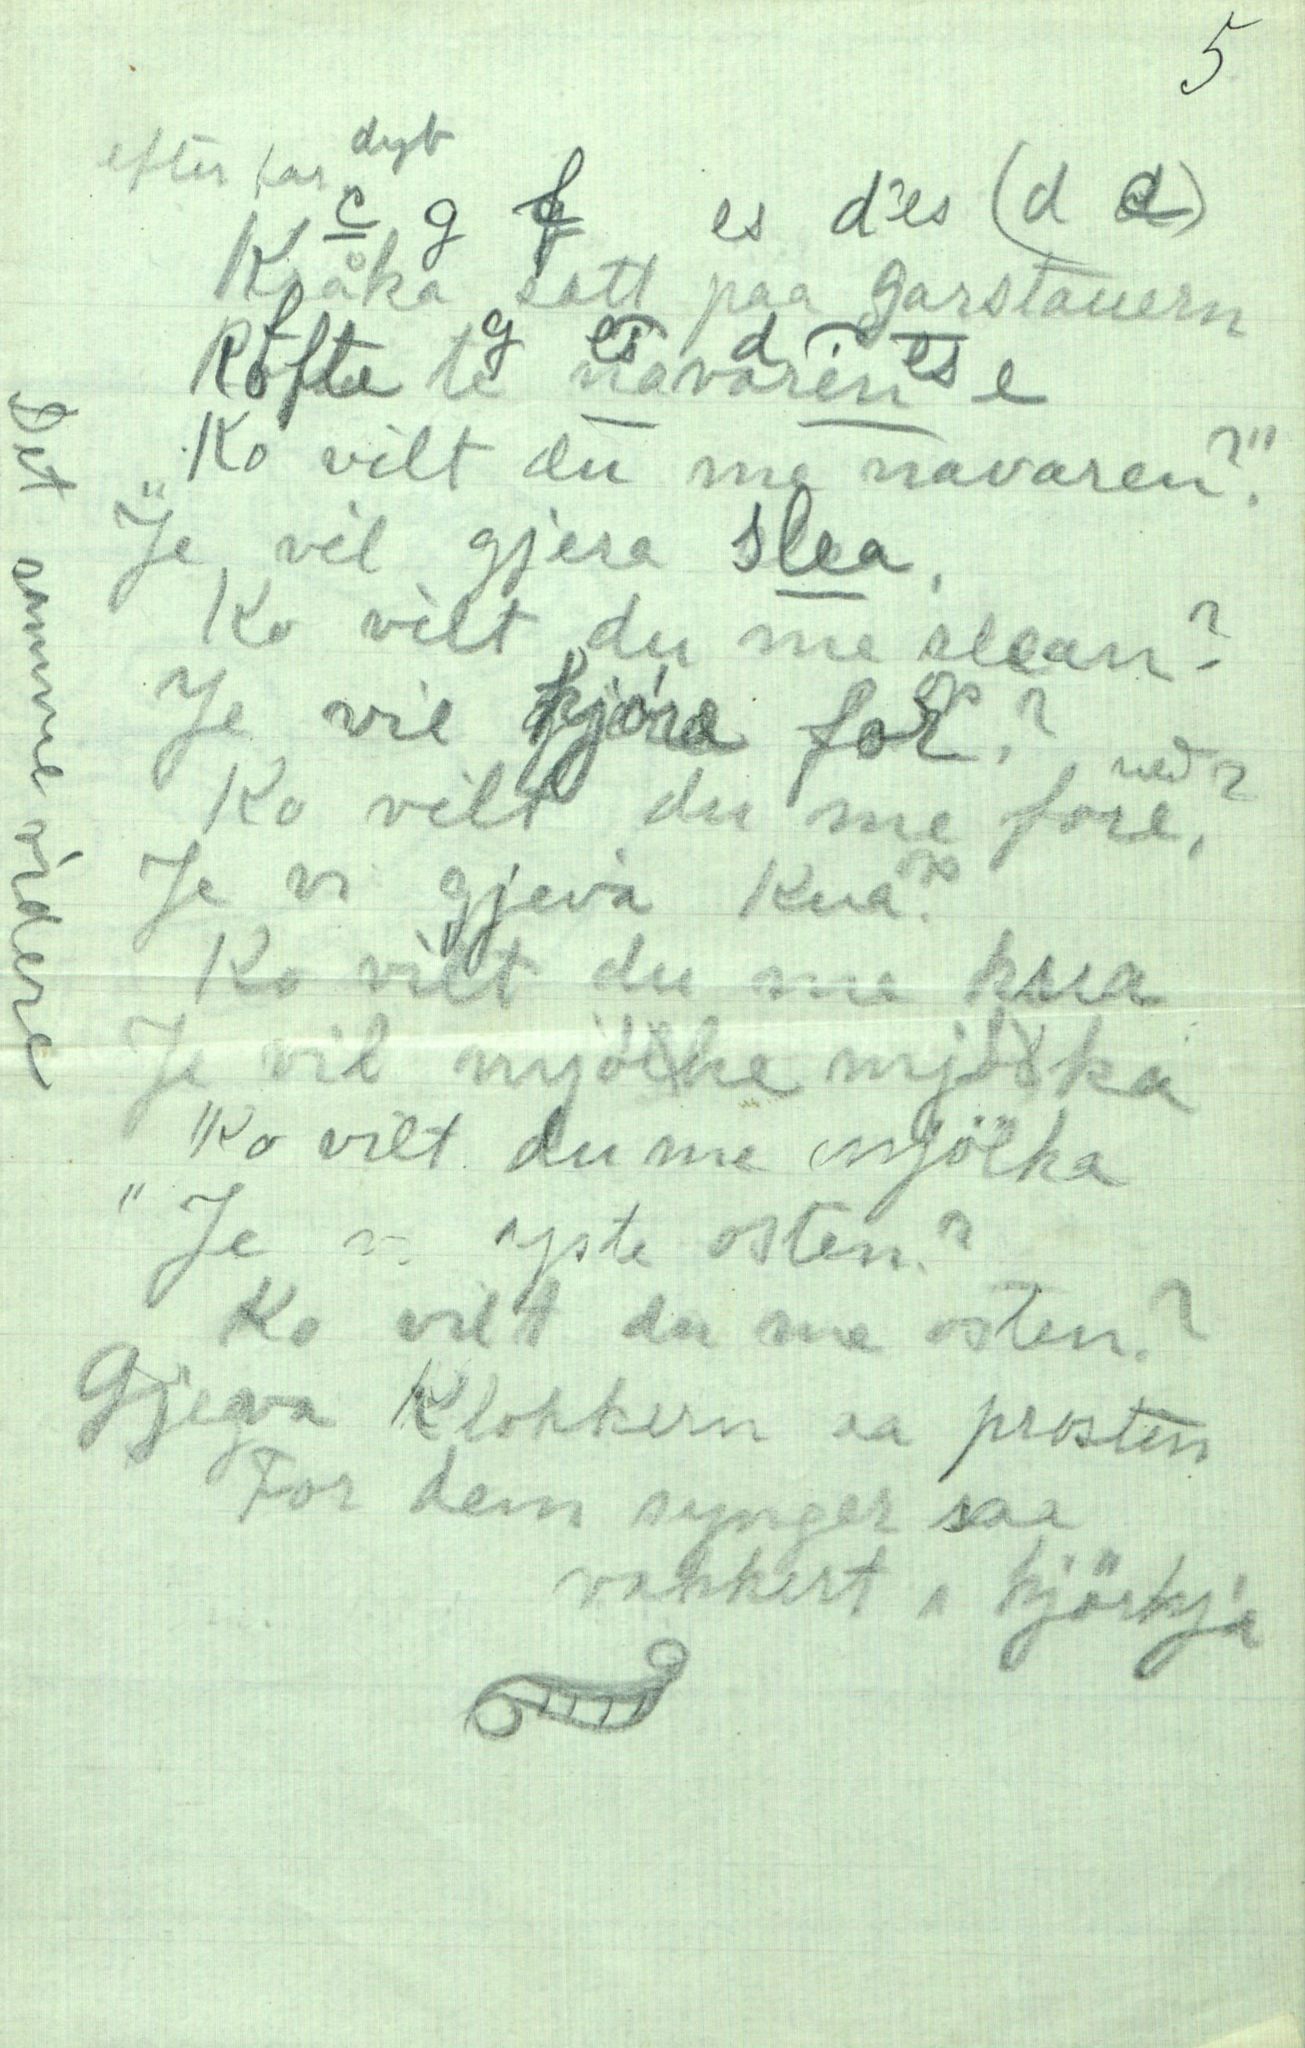 5
efter far dybt
c g f es d es (d d)
Kråka satt paa garstauern
f g es d es e
Rofte te navaren
Ko vilt du me navaren?"
"Je vil gjera slea.
Ko vilt du me slean?
Je vil kjöra for op?
Ko vilt du me fore, ned?
Je vi gjeva Kua? op
Ko vilt du me kua
Je vil mjölke mjölka
"Ko vilt du me mjölka
"Je vi yste osten?
Ko vilt du me osten?
Gjeva Klokkern aa prosten
For dem synger saa
vakkert i kjörkja
Det samme videre